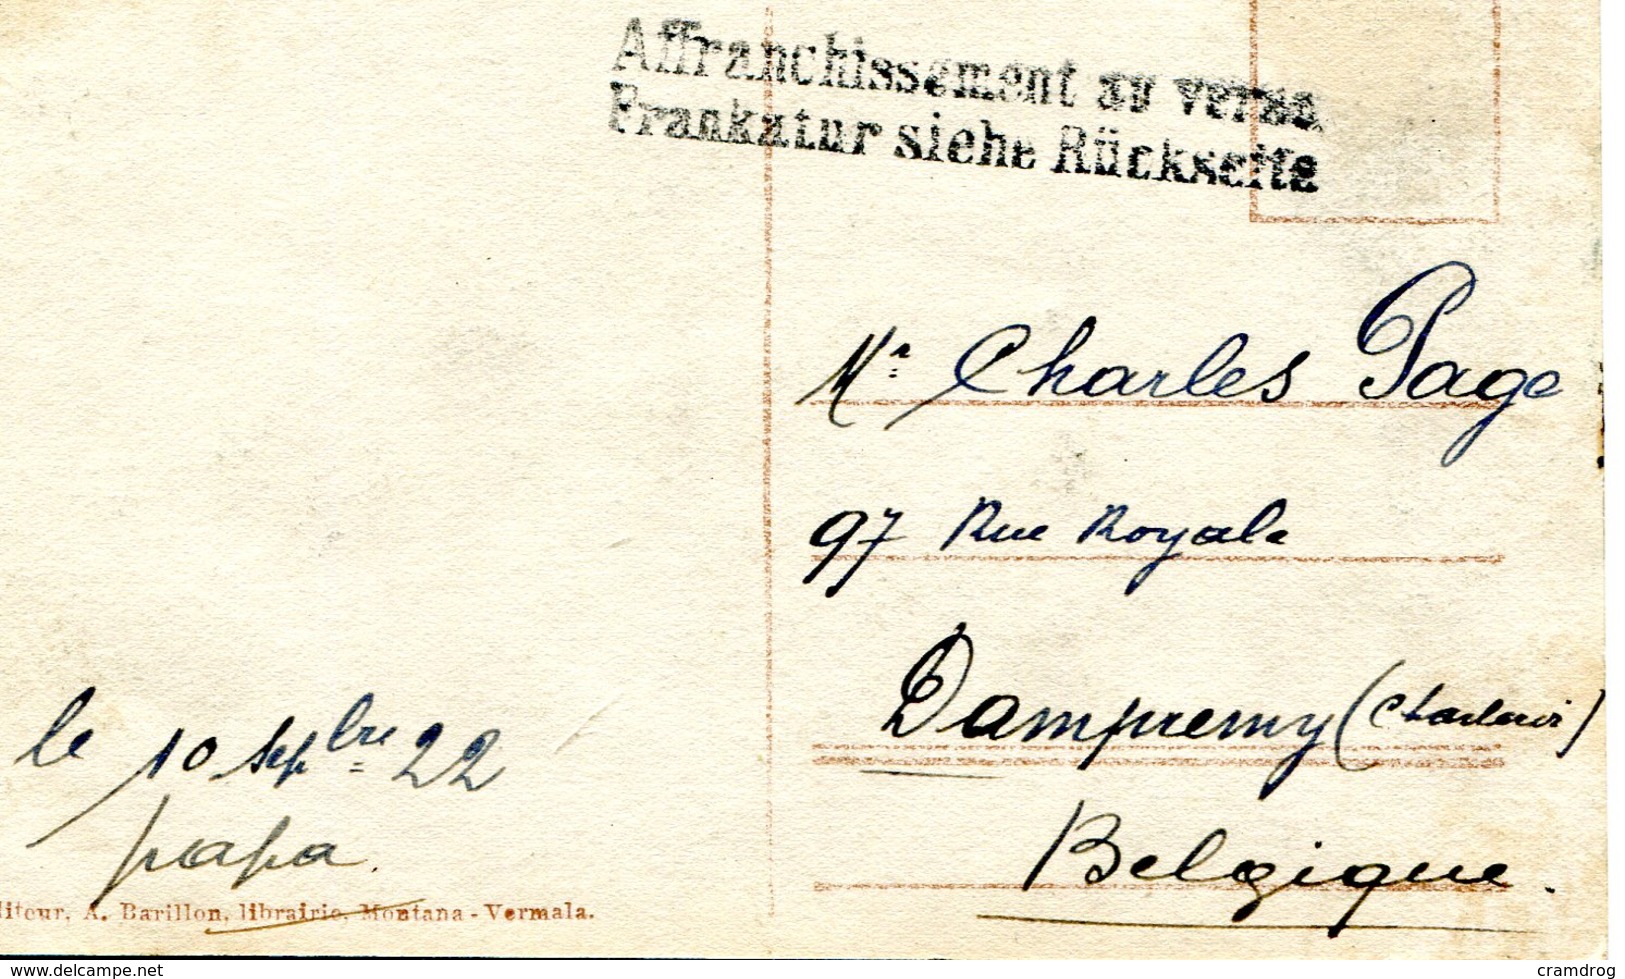 Affranchissement au verso
Frankatur siehe Rückseite
Mr Charles Page
97 Rue Royale
Dampremy (Charleroi)
Belgique.
le 10 Septbre 22
papa.
diteur, A. Barillon, librairie, Montana - Vermala.
www.delcampe.net
cramdrog